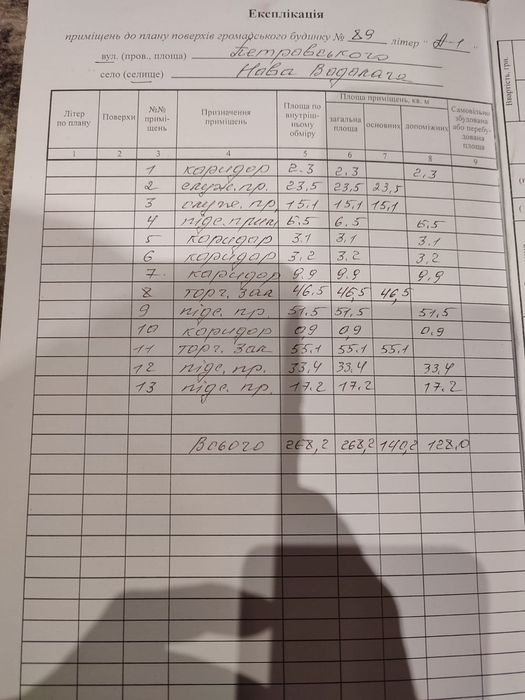 Експлікація
приміщень до плану поверхів громадського будинку № 89 літер " А-1 "
вул. (пров., площа) Петровського
село (селище) Нова Водолага
Літер по плану | Поверхи | №№ приміщень | Призначення приміщень | Площа по внутрішньому обміру | Площа приміщень, кв. м | загальна площа | основних | допоміжних | Самовільно збудована або перебудована площа
1 2 3 4 5 6 7 8 9
1 коридор 2.3 2.3 2,3
2 служ. пр. 23,5 23,5 23,5
3 служ. пр 15,1 15,1 15,1
4 підс. прим 6.5 6.5 6,5
5 коридор 3.1 3,1 3.1
6 коридор 3,2 3,2 3,2
7. коридор 9.9 9.9 9,9
8 торг. зал 46,5 46,5 46,5
9 підс. пр. 51,5 51,5 51,5
10 коридор 0,9 0,9 0.9
11 торг. зал 55.1 55.1 55.1
12 підс. пр. 33,4 33,4 33,4
13 підс. пр. 17.2 17.2 17.2
Всього 268,2 268,2 140,2 128,0
Вартість, грн.